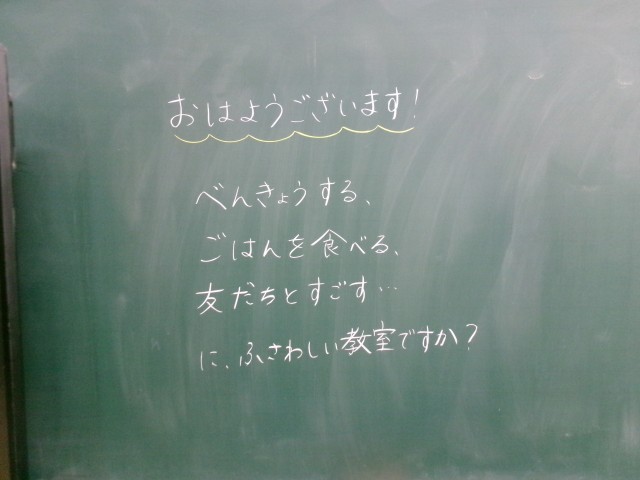 おはようございます!
べんきょうする、
ごはんを食べる、
友だちとすごす…
に、ふさわしい教室ですか?